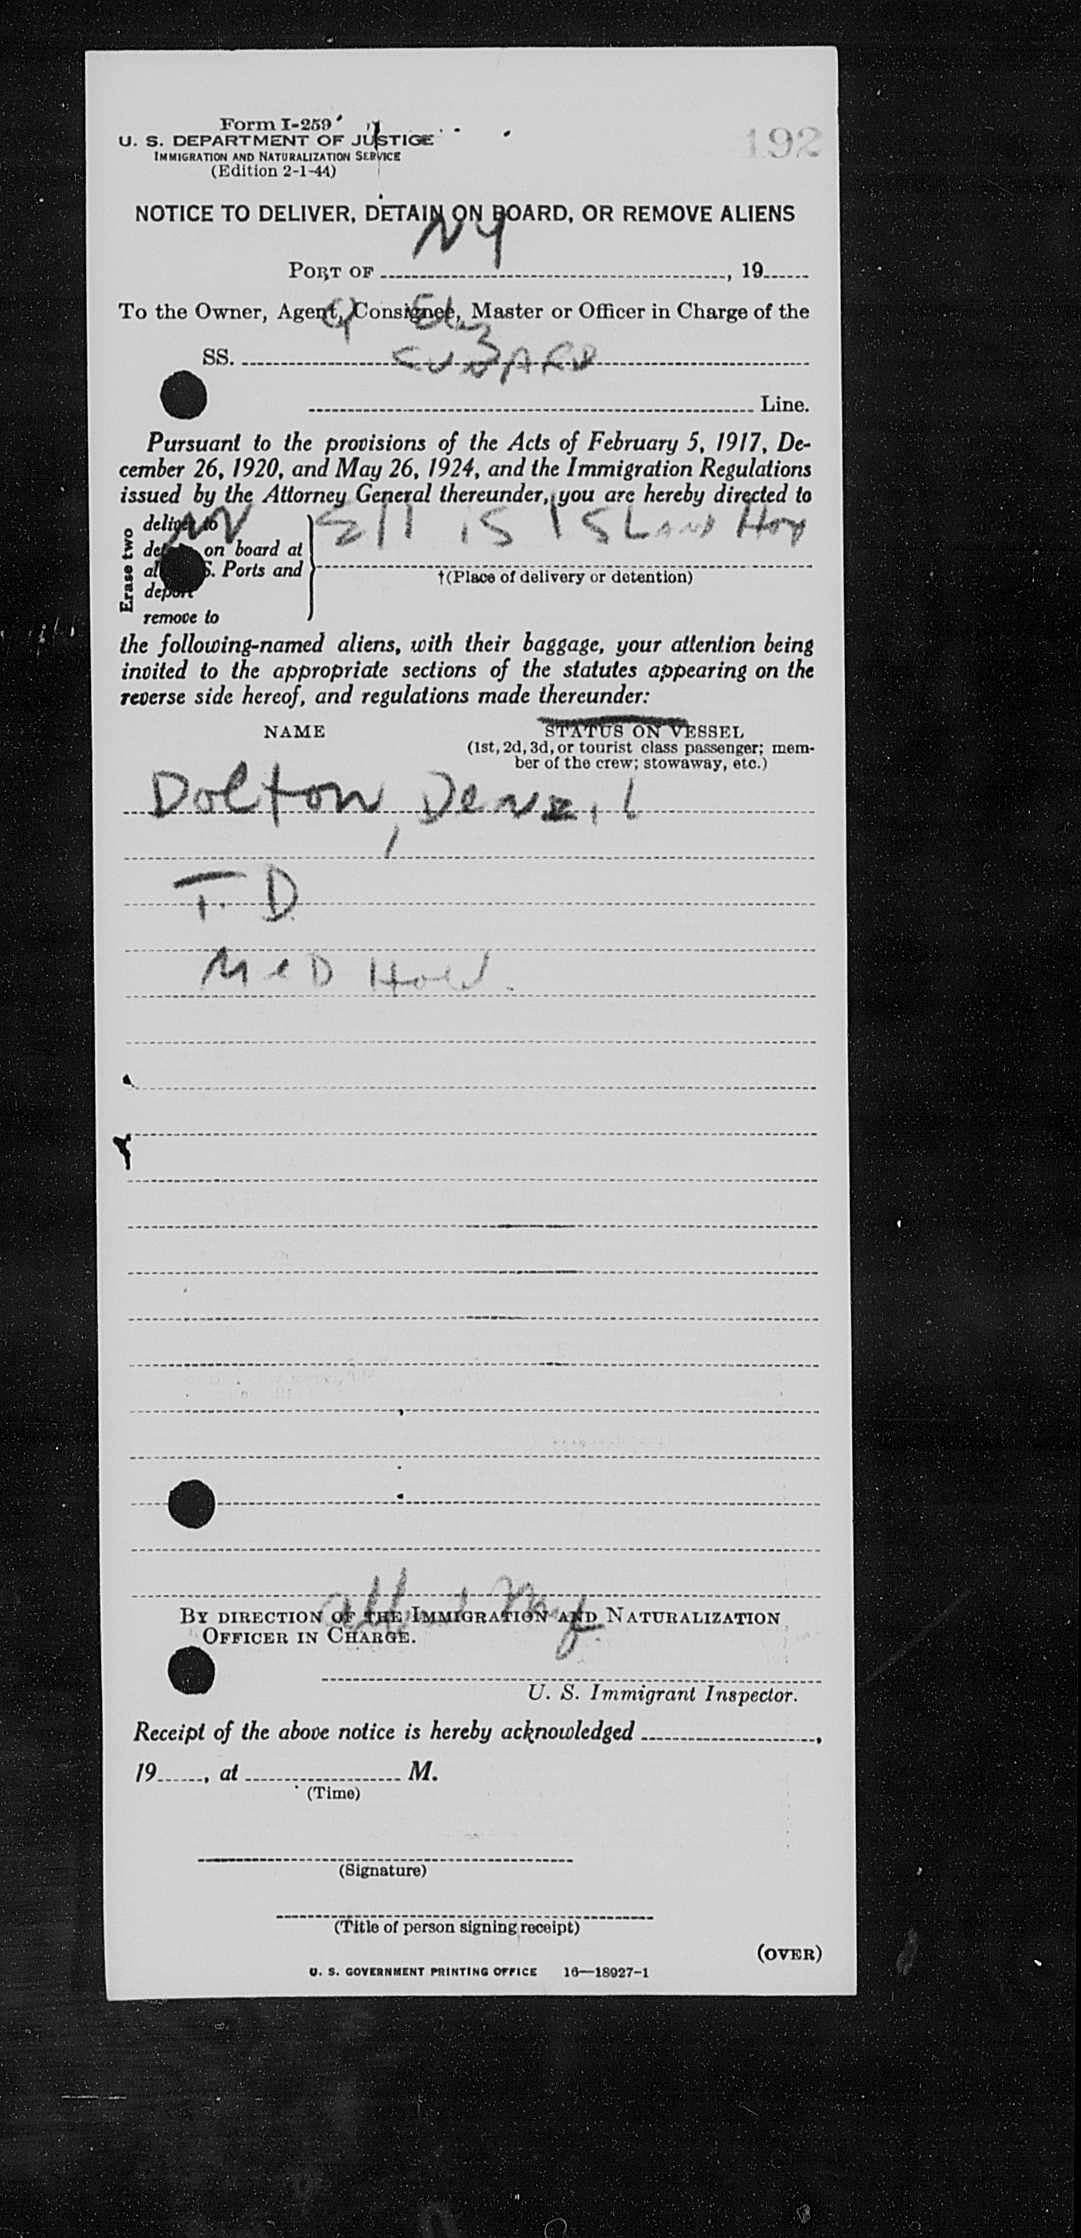 192
Form I-259
U. S. DEPARTMENT OF JUSTICE
IMMIGRATION AND NATURALIZATION SERVICE
(Edition 2-1-44)
NOTICE TO DELIVER, DETAIN ON BOARD, OR REMOVE ALIENS
NY
PORT OF , 19
To the Owner, Agent, Consignee, Master or Officer in Charge of the
Q Eliz
SS.
CUNARD
Line.
Pursuant to the provisions of the Acts of February 5, 1917, De-
cember 26, 1920, and May 26, 1924, and the Immigration Regulations
issued by the Attorney General thereunder, you are hereby directed to
Erase two
deliver to
Ellis Island Hosp
on board at
S. Ports and
†(Place of delivery or detention)
deport
remove to
the following-named aliens, with their baggage, your attention being
invited to the appropriate sections of the statutes appearing on the
reverse side hereof, and regulations made thereunder:
NAME STATUS ON VESSEL
(1st, 2d, 3d, or tourist class passenger; mem-
ber of the crew; stowaway, etc.)
Dolton, Denzil
T. D
Med Hold.
BY DIRECTION OF THE IMMIGRATION AND NATURALIZATION
OFFICER IN CHARGE.
U. S. Immigrant Inspector.
Receipt of the above notice is hereby acknowledged ,
19 , at M.
(Time)
(Signature)
(Title of person signing receipt)
(OVER)
U. S. GOVERNMENT PRINTING OFFICE 16—18927-1